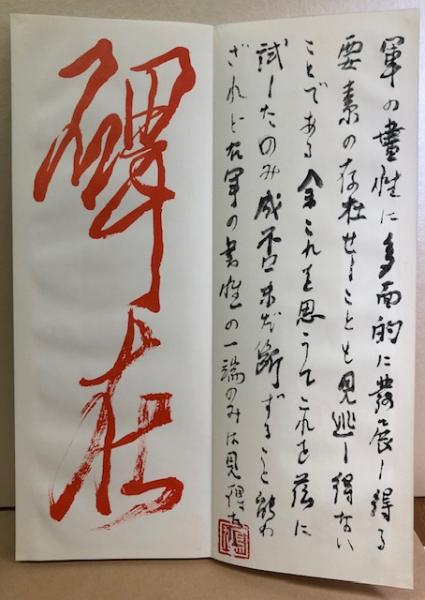 軍の書性に多面的に發展し得る
要素の存在せしことも見逃し得ない
ことである余これを思うてこれを茲に
試したのみ成否未だ斷ずること能わ
ざれど右軍の書性の一端のみは見得た
在